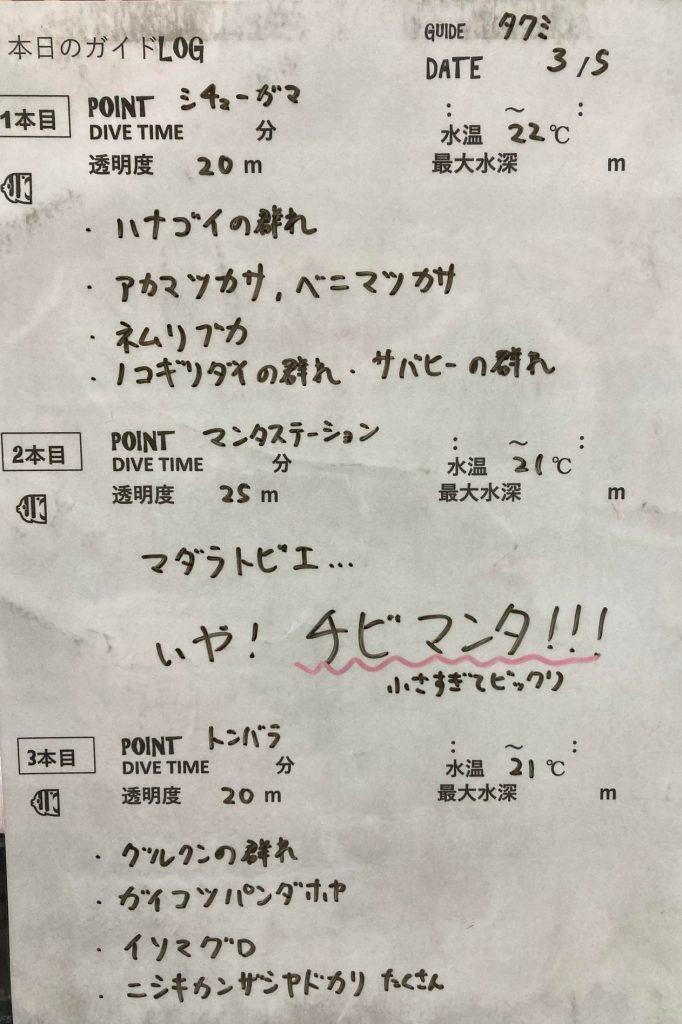 本日のガイドLOG
GUIDE タクミ
DATE 3/5
1本目
POINT シチューガマ
DIVE TIME 分
: ～ :
水温 22℃
透明度 20 m
最大水深 m
・ハナゴイの群れ
・アカマツカサ, ベニマツカサ
・ネムリブカ
・ノコギリダイの群れ・サバヒーの群れ
2本目
POINT マンタステーション
DIVE TIME 分
: ～ :
水温 21℃
透明度 25 m
最大水深 m
マダラトビエ...
いや! チビマンタ!!!
小さすぎてビックリ
3本目
POINT トンバラ
DIVE TIME 分
: ～ :
水温 21℃
透明度 20 m
最大水深 m
・グルクンの群れ
・ガイコツパンダホヤ
・イソマグロ
・ニシキカンザシヤドカリ たくさん